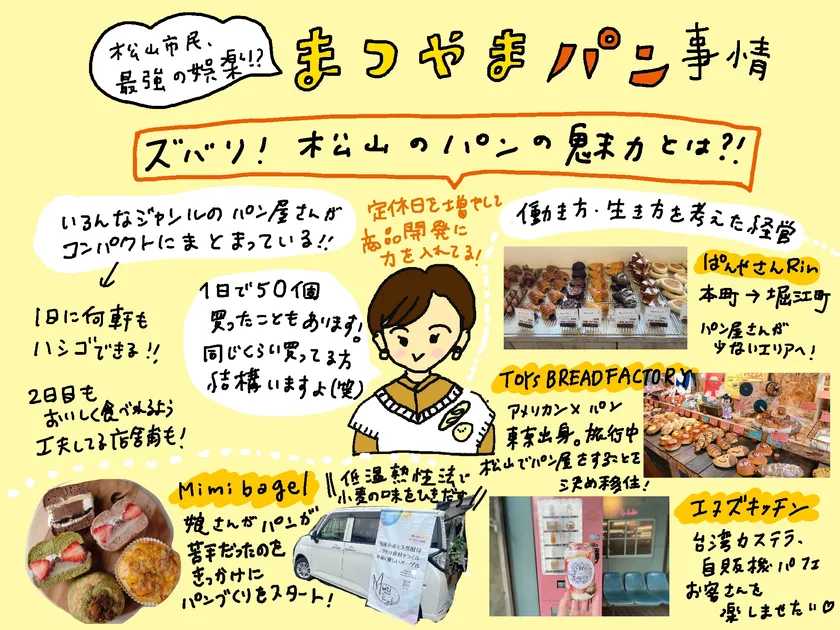 松山市民、
最強の娯楽!?
まつやまパン事情
ズバリ! 松山のパンの魅力とは?!
いろんなジャンルのパン屋さんが
コンパクトにまとまっている!!
1日に何軒も
ハシゴできる!!
2日目も
おいしく食べれるよう
工夫してる店舗も!
定休日を増やして
商品開発に
力を入れてる!
1日で50個
買ったこともあります!
同じくらい買ってる方
結構いますよ(笑)
働き方・生き方を考えた経営
ぱんやさんRin
本町→堀江町
パン屋さんが
少ないエリアへ!
TOY's BREADFACTORY
アメリカン×パン
東京出身。旅行中
松山でパン屋をすることを
決め移住!
Mimi bagel
娘さんがパンが
苦手だったのを
きっかけに
パンづくりをスタート!
低温熱性法で
小麦の味をひきだす
エヌズキッチン
台湾カステラ、
自販機パフェ
お客さんを
楽しませたい♡